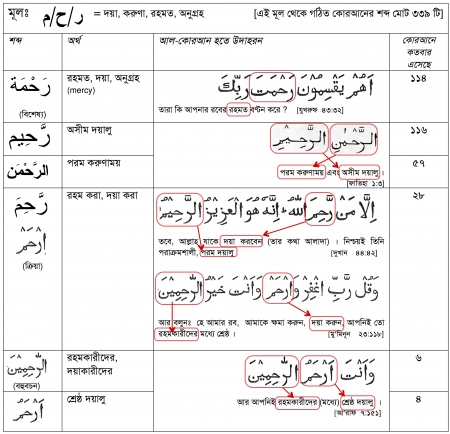 মূলঃ ر/ح/م = দয়া, করুণা, রহমত, অনুগ্রহ [এই মূল থেকে গঠিত কোরআনের শব্দ মোট ৩৩৯ টি]
শব্দ অর্থ আল-কোরআন হতে উদাহরন কোরআনে কতবার এসেছে
رَحْمَة (বিশেষ্য) রহমত, দয়া, অনুগ্রহ (mercy) اَهُمْ يَقْسِمُوْنَ رَحْمَتَ رَبِّكَ ১১৪
তারা কি আপনার রবের রহমত বন্টন করে ? [যুখরুফ ৪৩:৩২]
رَحِيم অসীম দয়ালু الرَّحْمٰنِ الرَّحِيْمِ ১১৬
الرَّحْمٰنَ পরম করুণাময় পরম করুণাময় এবং অসীম দয়ালু । ৫৭
[ফাতিহা ১:৩]
رَحِمَ রহম করা, দয়া করা اِلَّا مَنْ رَّحِمَ اللّٰهُ اِنَّهٗ هُوَ الْعَزِيْزُ الرَّحِيْمُ ২৮
ارْحَمْ (ক্রিয়া)
তবে, আল্লাহ যাকে দয়া করবেন (তার কথা আলাদা) । নিশ্চয়ই তিনি
পরাক্রমশালী, পরম দয়ালু [দুখান ৪৪:৪২]
وَقُلْ رَّبِّ اغْفِرْ وَارْحَمْ وَاَنْتَ خَيْرُ الرّٰحِمِيْنَ
আর বলুনঃ হে আমার রব, আমাকে ক্ষমা করুন, দয়া করুন, আপনিই তো
রহমকারীদের মধ্যে শ্রেষ্ঠ । [মু'মিনূন ২৩:১১৮]
الرّٰحِمِيْنَ (বহুবচন) রহমকারীদের, দয়াকারীদের وَاَنْتَ اَرْحَمُ الرّٰحِمِيْنَ ৬
اَرْحَمُ শ্রেষ্ঠ দয়ালু আর আপনিই রহমকারীদের (মধ্যে) শ্রেষ্ঠ দয়ালু । ৪
[আ'রাফ ৭:১৫১]